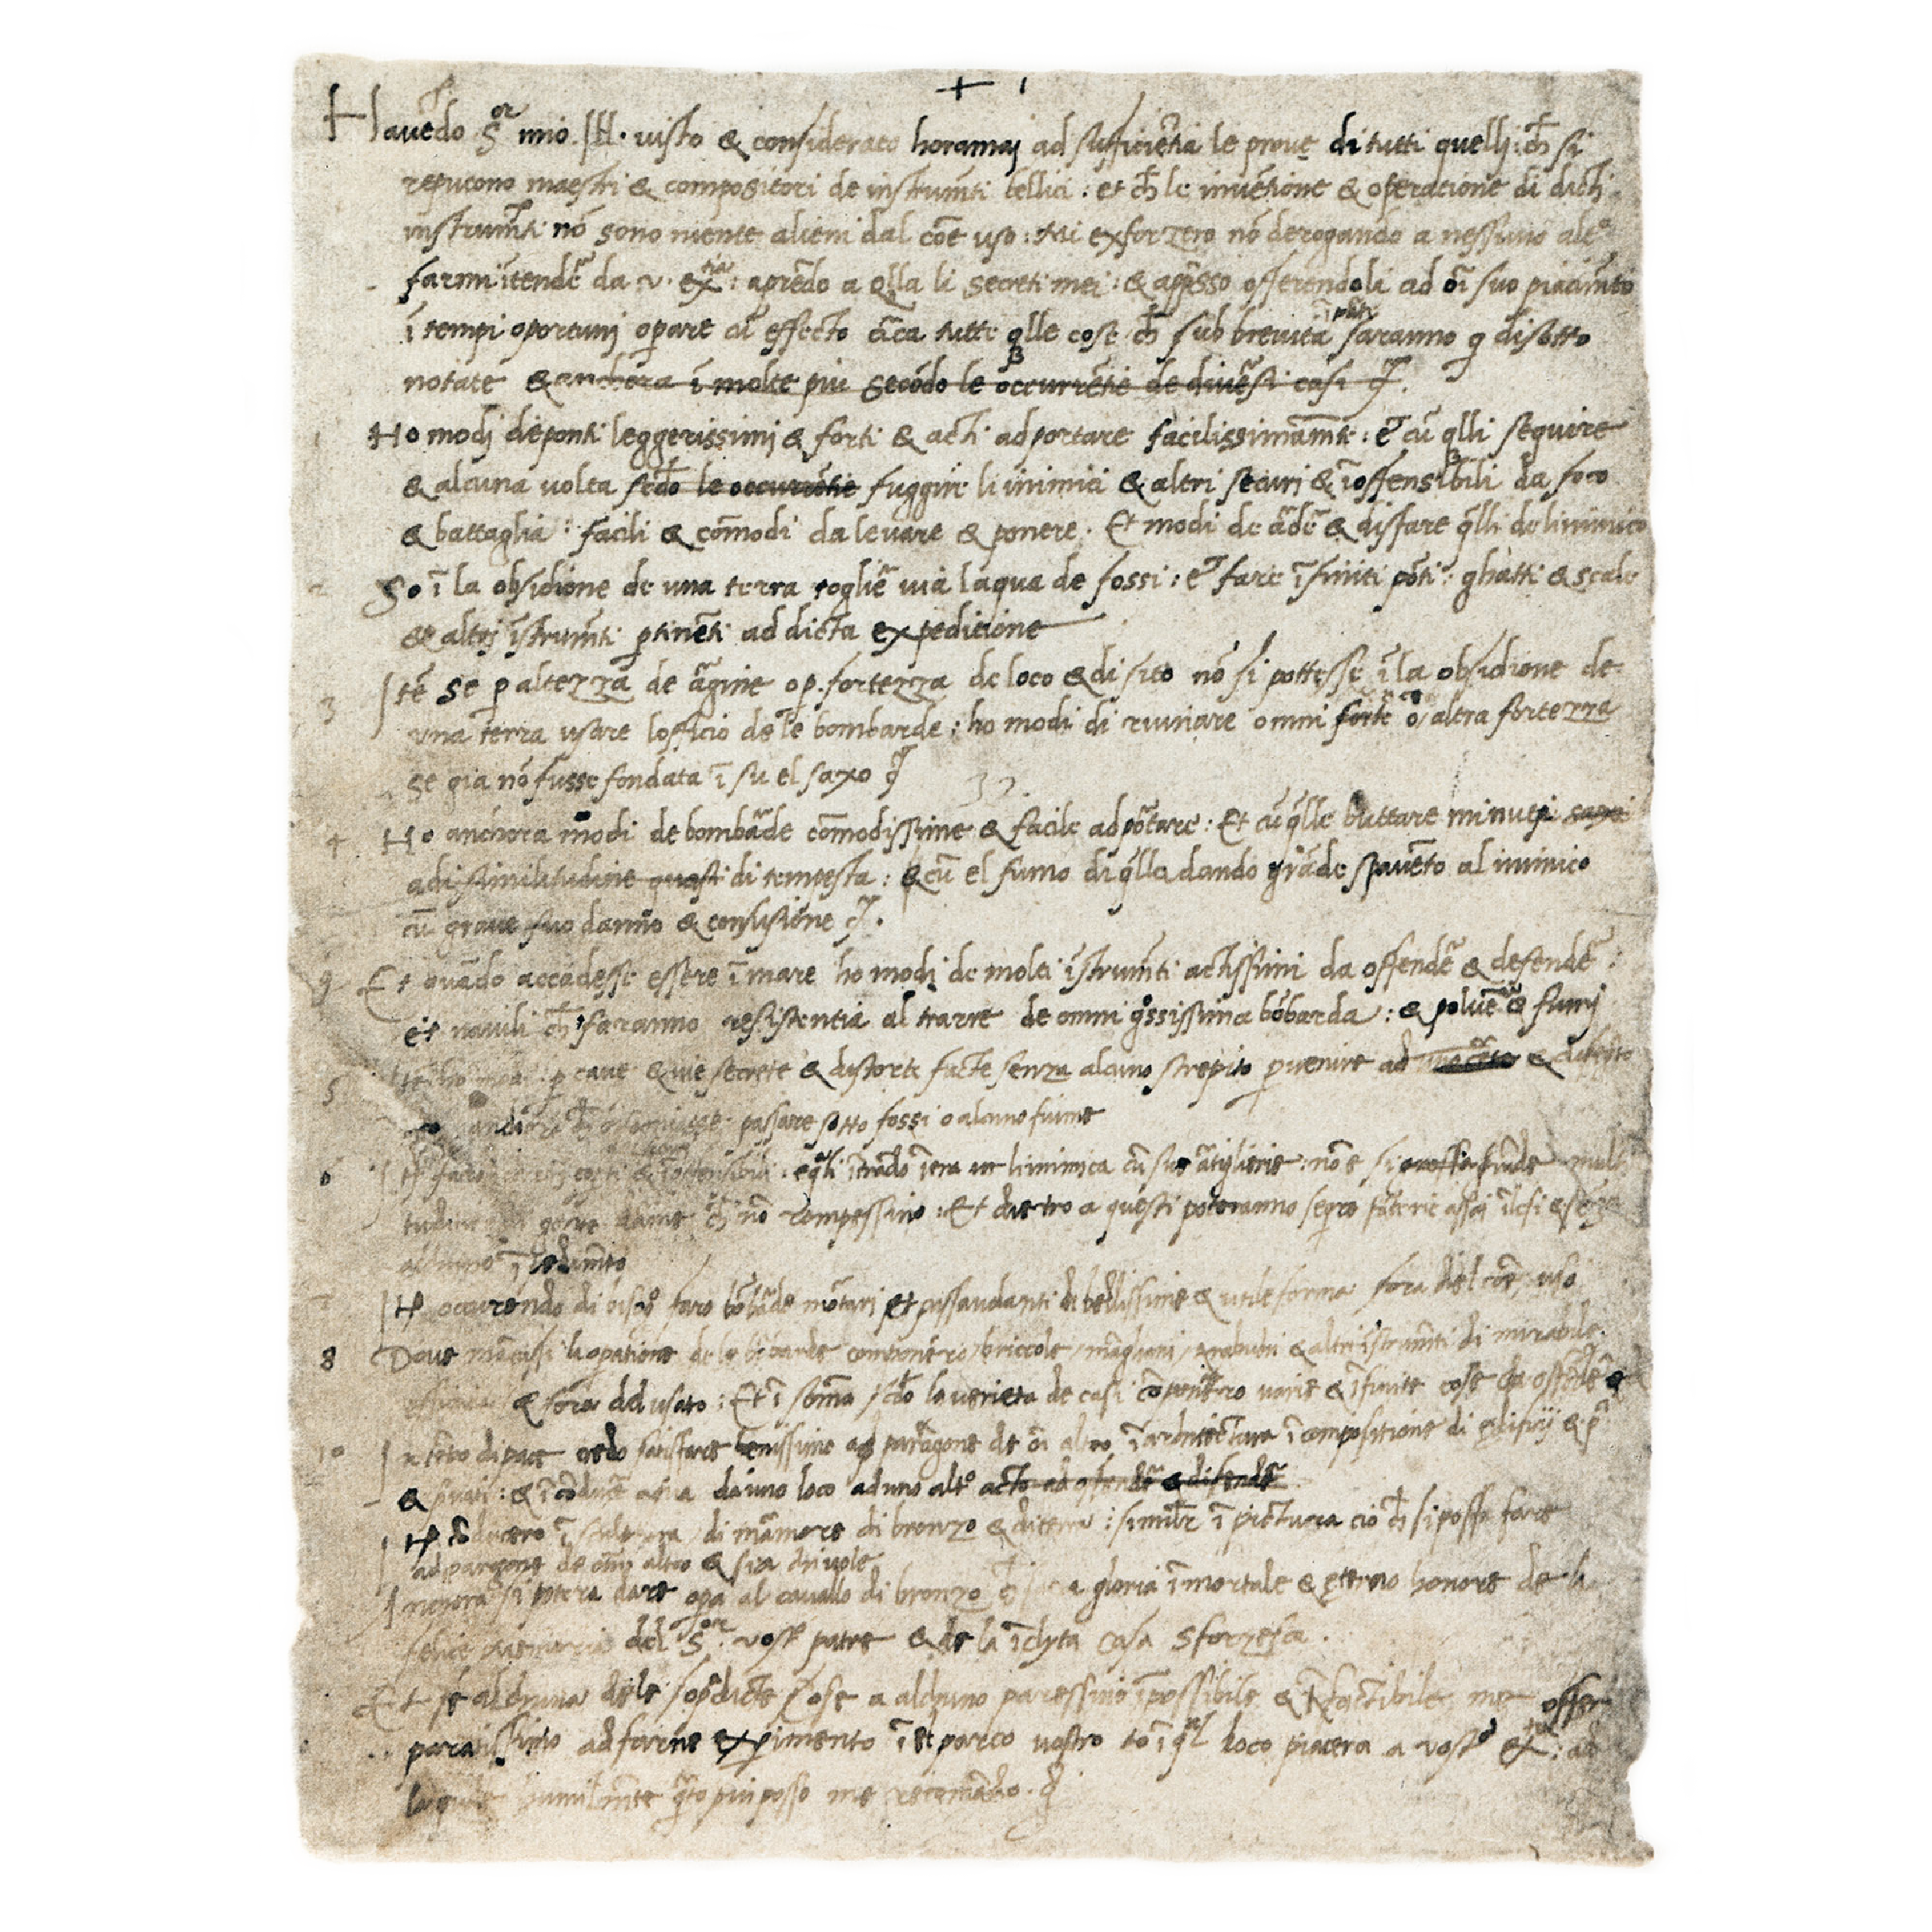 + 1
Havẽdo S.or mio Ill. visto & considerato horamai ad sufficiẽtia le prove di tutti quelli ch̃ si
reputono maestri & compositori de instrumẽti bellici : et ch̃ le inventione & operatione di dicti
instrumẽti nõ sono niente alieni dal cõe uso : Mi exforzero nõ derogando a nessuno alt.o
farmi ĩtendẽ da v. ex.tia : aprẽdo a q̃lla li secreti mei : & app̃sso offerendoli ad õi suo piacimẽto
ĩ tempi oportuni op̃are cũ effecto c̃ca tutte q̃lle cose ch̃ sub brevita ĩ p̃te saranno q̃ disotto
notate & anchora ĩ molte piu secõdo le occurrẽtie de div̉si casi
1 Ho modi de ponti leggerissimi & forti & acti ad portare facilissimamẽte : et cũ q̃lli seguire
& alcuna volta secõdo le occurrẽtie fuggire li inimici & altri securi & ĩoffensibili da foco
& battaglia : facili & cõmodi da levare & ponere. Et modi de ardẽ & disfare q̃lli de linimico
2 So ĩ la obsidione de una terra togliẽ via laqua de fossi : et fare ĩfiniti põti : ghatti & scale
& altri ĩstrumẽti p̃tinẽti ad dicta expeditione
3 Itẽ se p̃ altezza de argine o p̃ fortezza de loco & di sito nõ si pottesse ĩ la obsidione de
una terra usare lofficio de le bombarde : ho modi di ruinare omni forte o altra fortezza
se gia nõ fusse fondata ĩ su el saxo
32.
4 Ho anchora modi de bombãde cõmodissime & facile ad põtare : Et cũ q̃lle buttare minuti saxi
adi similitudine quasi di tempesta : & cũ el fumo di q̃lla dando grãde spavẽto al inimico
cũ grave suo danno & confusione
9 Et quãdo accadesse essere ĩ mare ho modi de molti ĩstrumẽti actissimi da offendẽ & defendẽ :
et navili ch̃ faranno resistentia al trarre de omni grossissima bõbarda : & polveẽ & fumi
5 p̃ cave & vie secrete & distorte facte senza alcuno strepito p̃venire ad & disegnato
passare sotto fossi o alcuno fiume
6 Itẽ faro carri coperti & ĩoffensibili : e q̃li ĩtrãdo ĩtra linimica cũ sue artiglierie : nõ e si grossa multi
tudine di gente darme ch̃ nõ rompessino : Et dietro a questi poteranno seguire fãterie assai ĩlesi & senza
alchuno ĩpedimẽto
7 Itẽ occurrẽdo di bisog.o faro bõbãde mõtari et passavolanti di bellissime & utile forme fora del cõe uso
8 Dove mãcassi la op̃atione de le bõbarde componero briccole mãghani trabuchi & altri ĩstrumẽti di mirabile
& fora del usato : Et ĩ sõma secõdo la varieta de casi cõponero varie & ĩfinite cose da offendẽ &
10 In tẽpo di pace credo satisfare benissimo ad paragone de õi altro ĩ architectura ĩ compositione di edificij &
& privati : & ĩ cõducẽ aqua da uno loco ad uno alt.o acto ad offendẽ & difendẽ
Itẽ cõducero ĩ sculptura di mãmore di bronzo & di terra : similẽ ĩ pictura cio ch̃ si possa fare
ad paragone de omni altro & sia chi vole
Anchora si potera dare opera al cavallo di bronzo ch̃ sara gloria ĩmortale & eterno honore de la
felice memoria del S.or vost.o patre & de la ĩclyta casa Sforzesca.
Et se alchuna de le sop̃dicte cose a alchuno paressino ĩpossibile & ĩfactibile me offer
paratissimo ad farne experimento ĩ el parco vostro o ĩ q̃l loco piacera a vost.a ex.tia : ad
la quale humilmẽte q̃to piu posso me recomãdo.